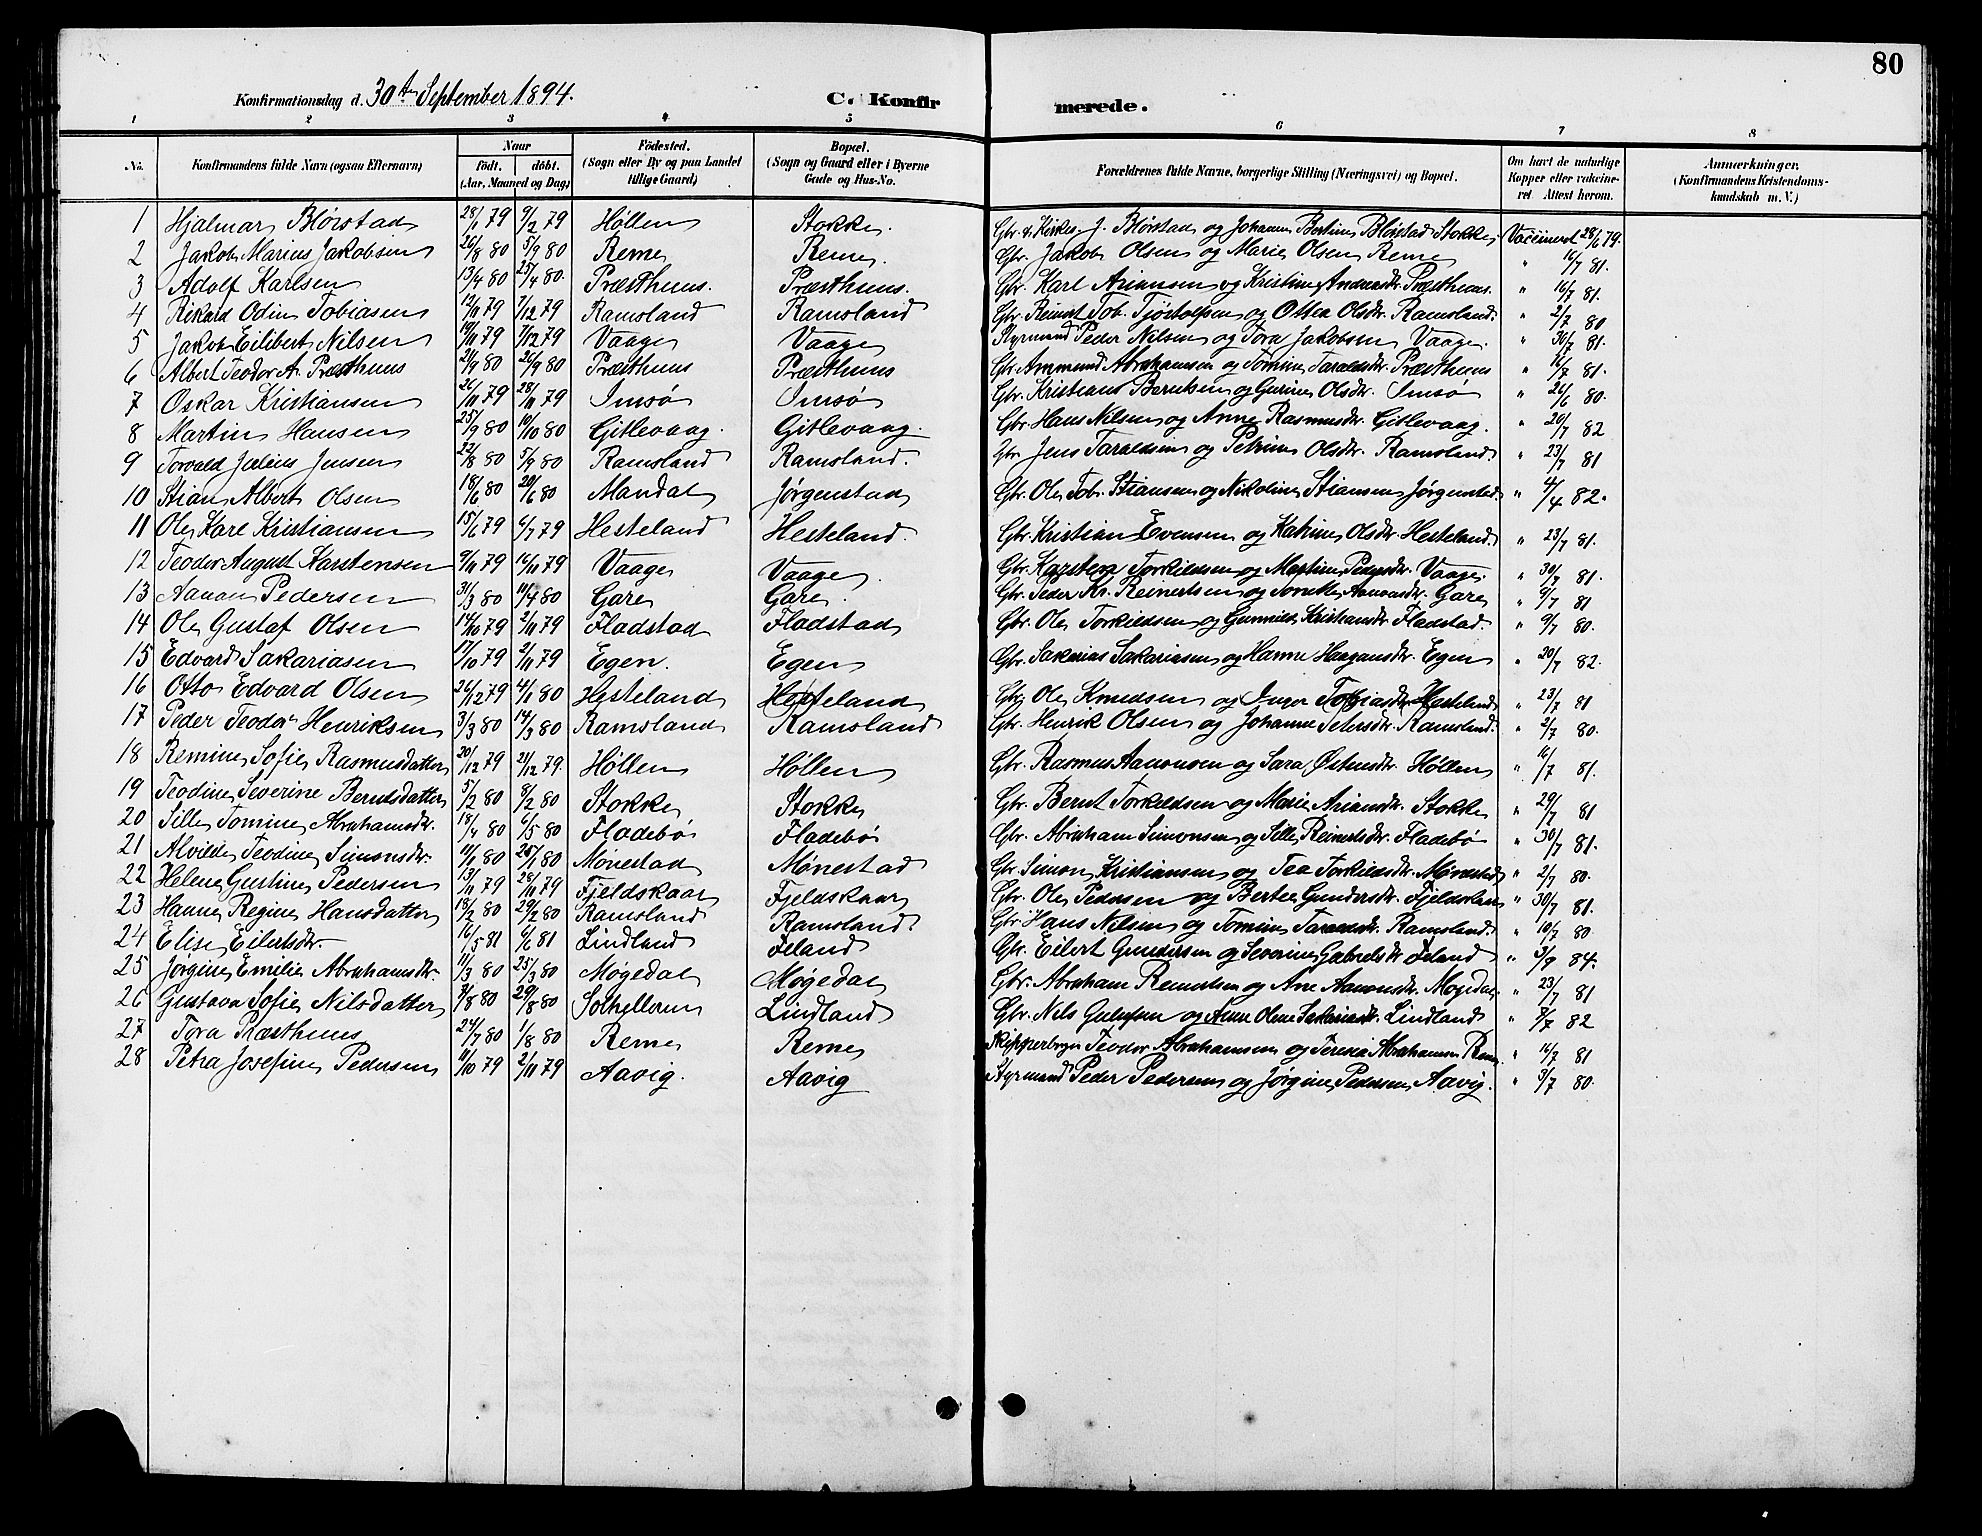 80
Konfirmationsdag d. 30te September 1894. C. Konfirmerede.
1 2 3 4 5 6 7 8
No. Konfirmandens fulde Navn (ogsaa Efternavn) Naar født. døbt. (Aar, Maaned og Dag) Fødested. (Sogn eller By og paa Landet tillige Gaard) Bopæl. (Sogn og Gaard eller i Byerne Gade og Hus-No. Forældrenes fulde Navne, borgerlige Stilling (Næringsvei) og Bopæl. Om havt de naturlige Kopper eller vakcineret Attest herom. Anmærkninger. (Konfirmandens Kristendomskundskab m. V.)
1 Hjalmar Blørstad 28/1 79 9/2 79 Høllen Stokke Gbr. & Kirkes. J. Blørstad og Johanne Bertine Blørstad Stokke Vaccineret 28/6 79.
2 Jakob Marius Jakobsen 26/8 80 5/9 80 Reme Reme. Gbr. Jakob Olsen og Marie Olsen Reme " 16/7 81.
3 Adolf Karlsen 13/4 80 25/4 80. Præsthuus. Præsthuus. Gbr. Karl Ariansen og Kristine Andersdtr. Præsthuus. " 16/7 81.
4 Rikard Odin Tobiasen 12/11 79 7/12 79 Ramsland Ramsland Gbr. Reinert Tob. Tjøstolfsen og Ottea Olsdtr. Ramsland. " 2/7 80
5 Jakob Eilibert Nilsen 19/11 79 7/12 79 Vaage Vaage Styrmand Peder Nilsen og Tora Jakobsen Vaage. " 30/7 81.
6 Albert Teodor A. Præsthuus 21/9 80 26/9 80 Præsthuus Præsthuus Gbr. Ammund Abrahamsen og Tomine Taraldsdtr. Præsthuus " 16/7 81.
7 Oskar Kristiansen 26/11 79 28/11 79 Imsø Imsø Gbr. Kristian Berntsen og Gurine Olsdtr. Imsø " 26/6 80.
8 Martin Hansen 25/9 80 10/10 80 Gitlevaag. Gitlevaag. Gbr. Hans Nilsen og Anne Rasmusdtr. Gitlevaag. " 20/7 82
9 Torvald Julius Jensen 22/8 80 5/9 80 Ramsland Ramsland. Gbr. Jens Taraldsen og Petrine Olsdtr. Ramsland. " 23/7 81
10 Stian Albert Olsen 18/6 80 20/6 80 Mandal Jørgenstad Gbr. Ole Tob. Stiansen og Nikoline Stiansen Jørgenstad " 4/4 82.
11 Ole Karl Kristiansen 15/6 79 6/7 79 Hesteland Hesteland. Gbr. Kristian Evensen og Katrine Olsdtr. Hesteland. " 23/7 81.
12 Teodor August Karstensen 9/11 79 16/11 79 Vaage Vaage. Gbr. Karsten Torkildsen og Martine Pedersdtr. Vaage. " 30/7 81.
13 Aanon Pedersen 31/3 80 11/4 80 Gare Gare. Gbr. Peder Kr. Reinertsen og Tomine Aanonsdtr. Gare " 9/7 81
14 Ole Gustaf Olsen 14/10 79 2/11 79 Fladstad Fladstad Gbr. Ole Torkildsen og Gunnild Kristiansdtr. Fladstad. " 9/7 80.
15 Edvard Sakariasen 17/10 79 2/11 79 Egen. Egen Gbr. Sakarias Sakariasen og Hanne Haagansdtr. Egen " 20/7 82.
16 Otto Edvard Olsen 26/12 79 4/1 80 Hesteland Hesteland Gbr. Ole Knudsen og Inger Tobiasdtr. Hesteland " 23/7 81
17 Peder Teodor Henriksen 3/3 80 14/3 80 Ramsland Ramsland Gbr. Henrik Olsen og Johanne Petersdtr. Ramsland. " 2/7 80.
18 Remine Sofie Rasmusdatter 20/12 79 21/12 79. Høllen Høllen Gbr. Rasmus Aanonsen og Sara Østensdtr. Høllen " 16/7 81.
19 Teodine Severine Berntsdatter 5/2 80 8/2 80 Stokke Stokke Gbr. Bernt Torkildsen og Marie Ariansdtr. Stokke " 29/7 81
20 Sille Tomine Abrahamsdtr. 18/4 80 6/5 80 Fladebø Fladebø Gbr. Abraham Simonsen og Sille Reinertsdtr. Fladebø " 30/7 81.
21 Alvilde Teodine Simonsdtr. 11/1 80 25/1 80 Mønestad Mønestad Gbr. Simon Kristiansen og Tea Torkildsdtr. Mønestad " 2/7 80.
22 Helene Gustine Pedersen 13/11 79 28/11 79 Fjeldskaar Fjeldskaar Gbr. Ole Pedersen og Bertee Gundersdtr. Fjeldskaar " 30/7 81.
23 Hanne Regine Hansdatter 18/2 80 29/2 80 Ramsland Ramsland Gbr. Hans Nilsen og Tomine Taraldsdtr. Ramsland. " 10/7 80.
24 Elise Eilertsdtr. 16/5 81 6/6 81 Lindland Ieland Gbr. Eilert Gundersen og Severine Gabrielsdtr. Ieland " 3/9 84.
25 Jørgine Emilie Abrahamsdtr. 11/3 80 25/3 80 Møgedal Møgedal Gbr. Abraham Reinertsen og Ane Aanonsdtr. Møgedal " 23/7 81
26 Gustava Sofie Nilsdatter 3/8 80 29/8 80 Lindland Gbr. Nils Gulufsen og Anne Oline Sakariasdtr. Lindland " 3/7 82
27 Tora Præsthuus 24/7 80 1/8 80 Reme Reme Skipperborger Teodor Abrahamsen og Teresia Abrahamsen Reme. " 16/7 81
28 Petra Josefine Pedersen 11/10 79 2/11 79 Aavig. Aavig Styrmand Peder Pedersen og Jørgine Pedersen Aavig. " 3/7 80.